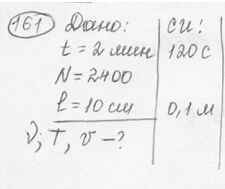 161 Дано: СИ:
t = 2 мин 120 с
N = 2400
l = 10 см 0,1 м
ν; T, v – ?